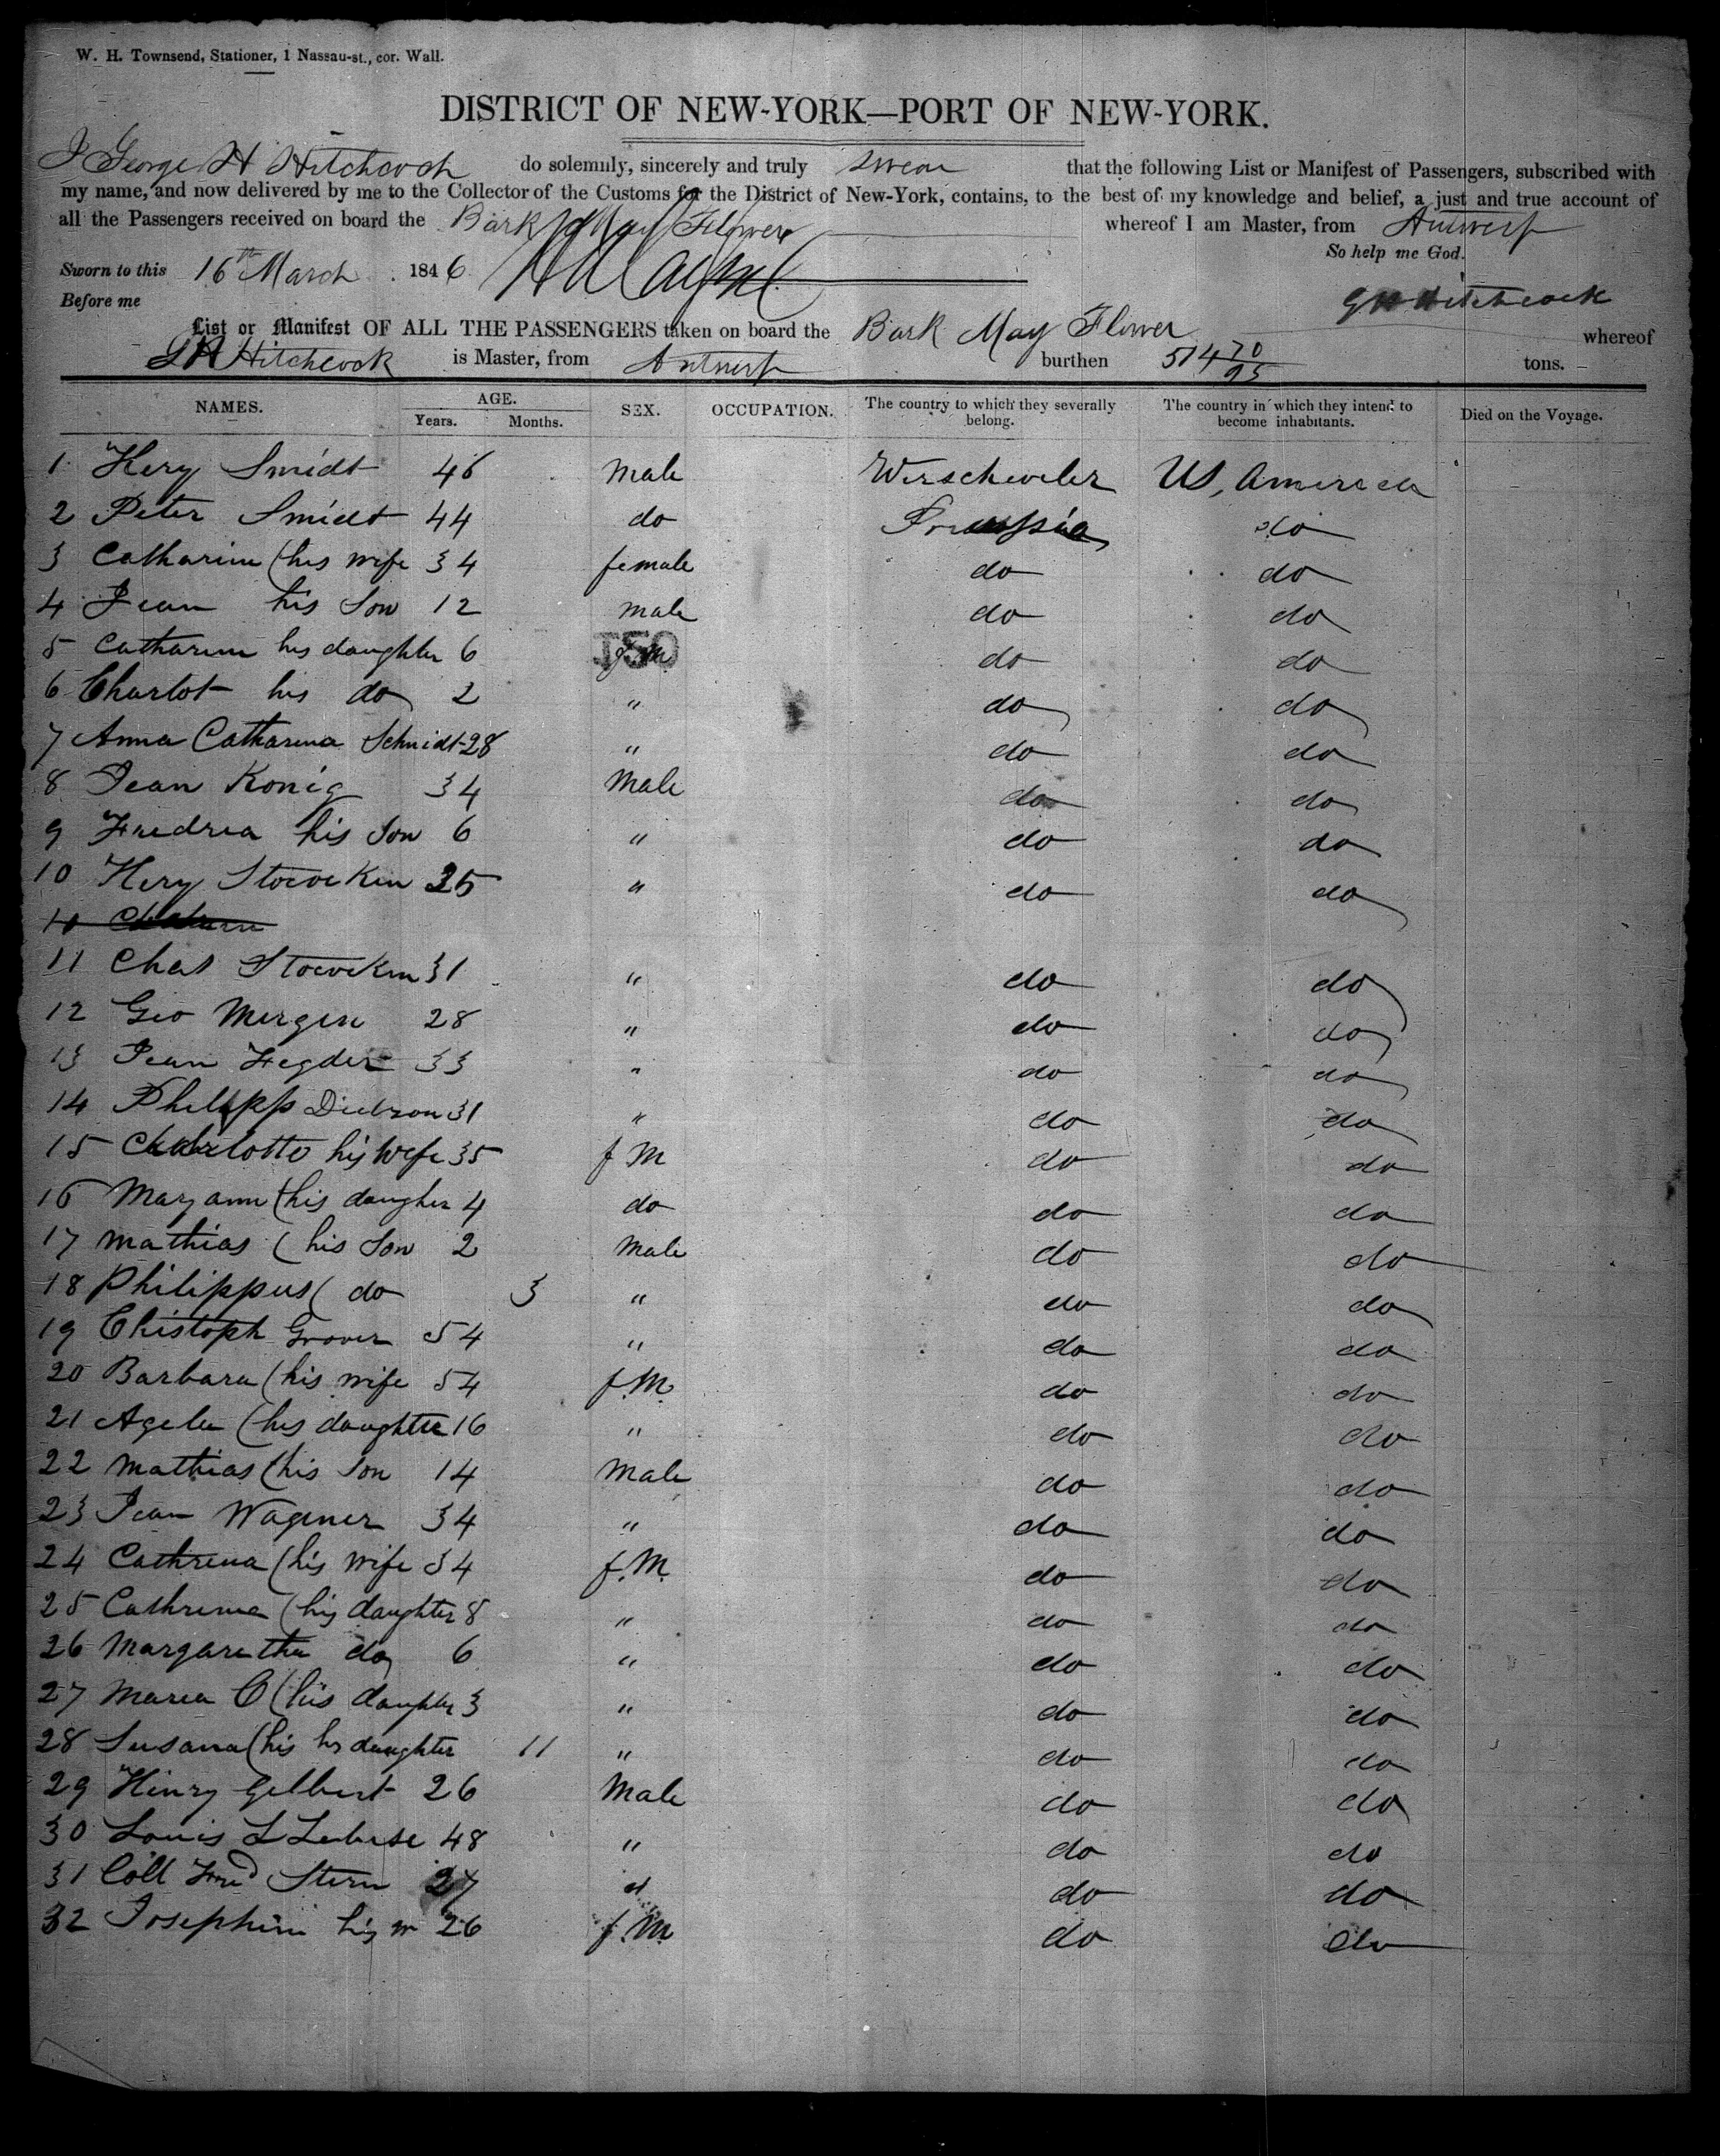 W. H. Townsend, Stationer, 1 Nassau-st., cor. Wall.
DISTRICT OF NEW-YORK—PORT OF NEW-YORK.
I George H Hitchcock do solemnly, sincerely and truly swear that the following List or Manifest of Passengers, subscribed with
my name, and now delivered by me to the Collector of the Customs for the District of New-York, contains, to the best of my knowledge and belief, a just and true account of
all the Passengers received on board the Bark May Flower whereof I am Master, from Antwerp
So help me God.
Sworn to this 16th March 1846
Before me G H Hitchcock
List or Manifest OF ALL THE PASSENGERS taken on board the Bark May Flower whereof
G H Hitchcock is Master, from Antwerp burthen 514 70/95 tons.
NAMES. AGE. Years. Months. SEX. OCCUPATION. The country to which they severally belong. The country in which they intend to become inhabitants. Died on the Voyage.
1 Hery Smidt 46 male Werscheveler US, America
2 Peter Smidt 44 do Preussia do
3 Catharine (his wife 34 female do do
4 Jean his Son 12 male do do
5 Catharine his daughter 6 f.M. do do
6 Charlot his do 2 " do do
7 Anna Catharina Schmidt 28 " do do
8 Jean Konig 34 Male do do
9 Friedrea his Son 6 " do do
10 Hery Stocvcken 25 " do do
11 Chas Stocvcken 31 " do do
12 Geo Mergen 28 " do do
13 Jean Fegder 33 " do do
14 Philipp Diebron 31 " do do
15 Charlotte his wefe 35 f M do do
16 Maryann (his daugher 4 do do do
17 Mathias ( his Son 2 Male do do
18 Philippus ( do 3 " do do
19 Christoph Grover 54 " do do
20 Barbara (his wife 54 f.M. do do
21 Agele (his daughter 16 " do do
22 Mathias (his Son 14 Male do do
23 Jean Wagener 34 " do do
24 Cathrena (his wife 34 f.M. do do
25 Cathrena (his daughter 8 " do do
26 Margaretha do 6 " do do
27 Maria C (his daughter 3 " do do
28 Susana (his hs daughter 11 " do do
29 Hinry Gelbert 26 Male do do
30 Louis L 48 " do do
31 Fred Stern 27 " do do
32 Josephine his w 26 f.M. do do